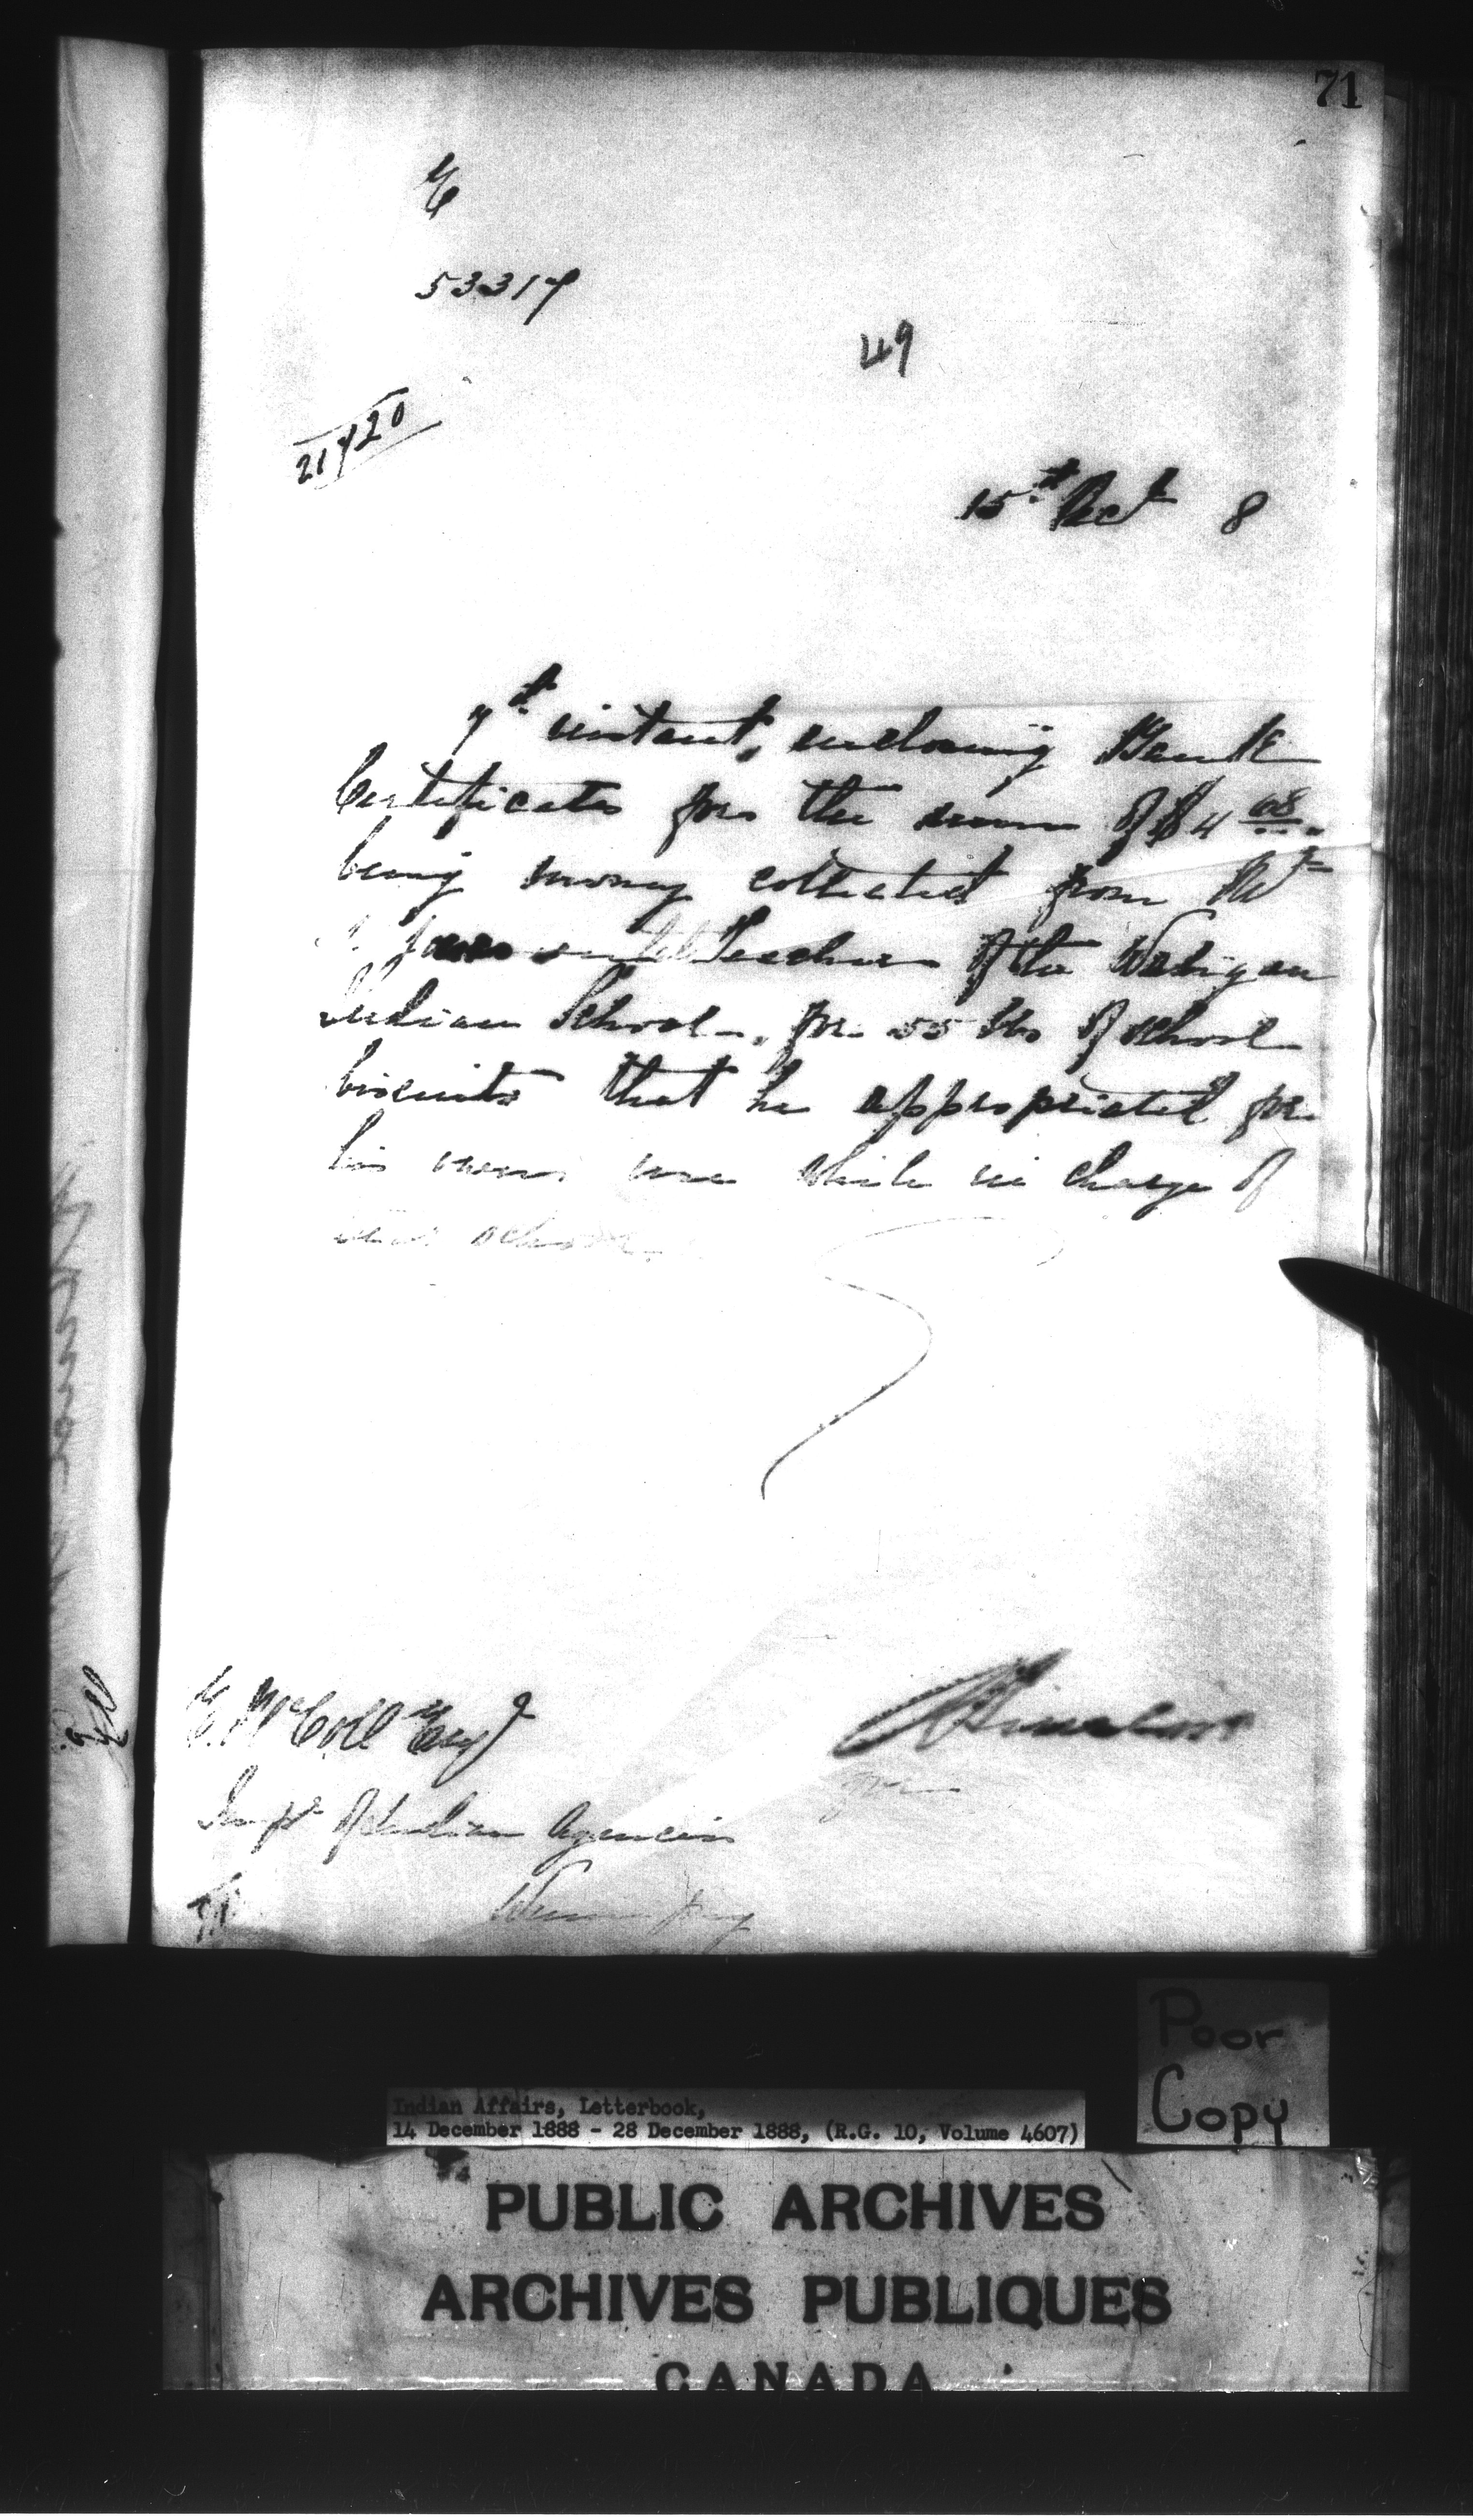 71
53317
49
21720
15th Dec 8
7th instant, enclosing Bank
Certificate for the sum of $4 08
being money collected from
Teacher of the Wabigon
Indian School, for 55 lbs of school
biscuits that he appropriated for
his own use while in charge of
school.
E. McColl Esq
Inspr of Indian Agencies
Winnipeg
Poor
Copy
Indian Affairs, Letterbook,
14 December 1888 - 28 December 1888, (R.G. 10, Volume 4607)
PUBLIC ARCHIVES
ARCHIVES PUBLIQUES
CANADA